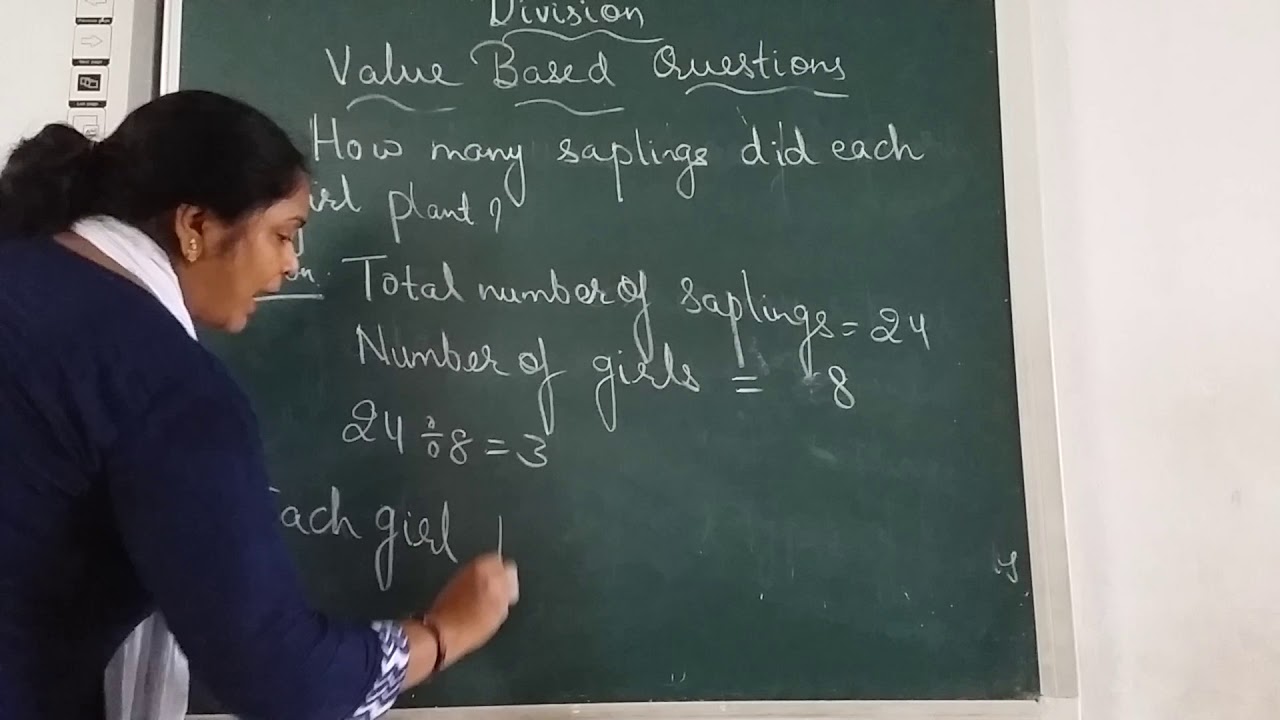 Division
Value Based Questions
How many saplings did each
girl plant?
Total number of saplings = 24
Number of girls = 8
24 ÷ 8 = 3
Each girl